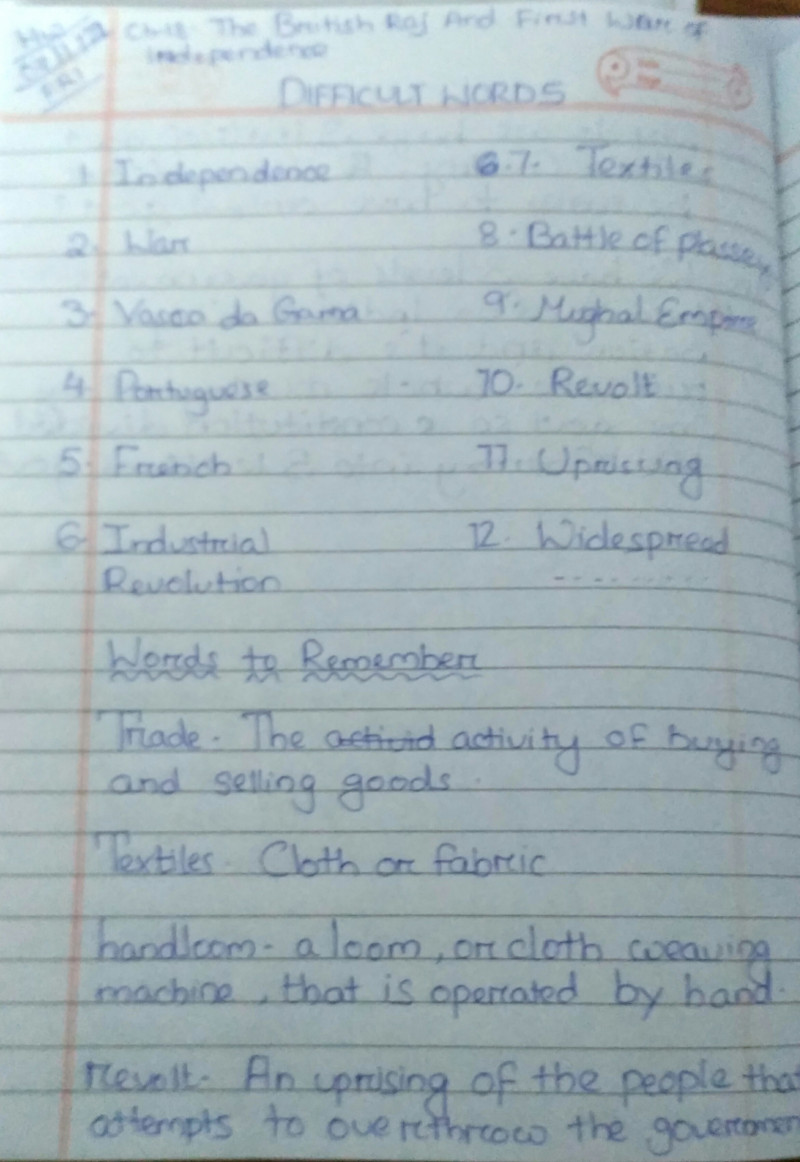 HW
FRI
Ch-18 The British Raj And First War of
Independence
DIFFICULT WORDS
1 Independence
2 War
3 Vasco da Gama
4 Portuguese
5 French
6 Industrial
Revolution
7. Textiles
8. Battle of plassey
9. Mughal Empire
10. Revolt
11. Uprissing
12. Widespread
Words to Remember
Trade - The activity of buying
and selling goods.
Textiles - Cloth or fabric
handloom - a loom, or cloth weaving
machine, that is operated by hand.
revolt - An uprising of the people that
attempts to overthrow the